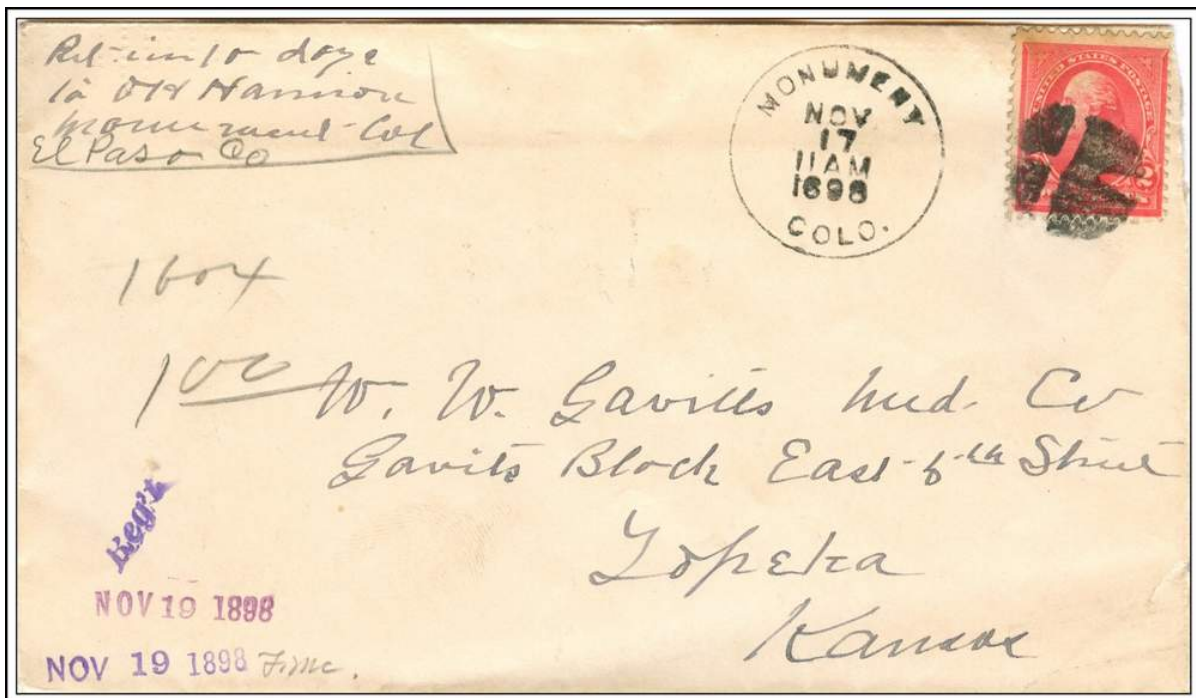 Ret in 10 days
to OH Harrison
Monument Col
El Paso Co
MONUMENT
NOV
17
11AM
1898
COLO.
UNITED STATES POSTAGE
2
1 box
1 00
W. W. Gavitts Med. Co
Gavits Block East 6th Street
Topeka
Kansas
Reg't
NOV 19 1898
NOV 19 1898